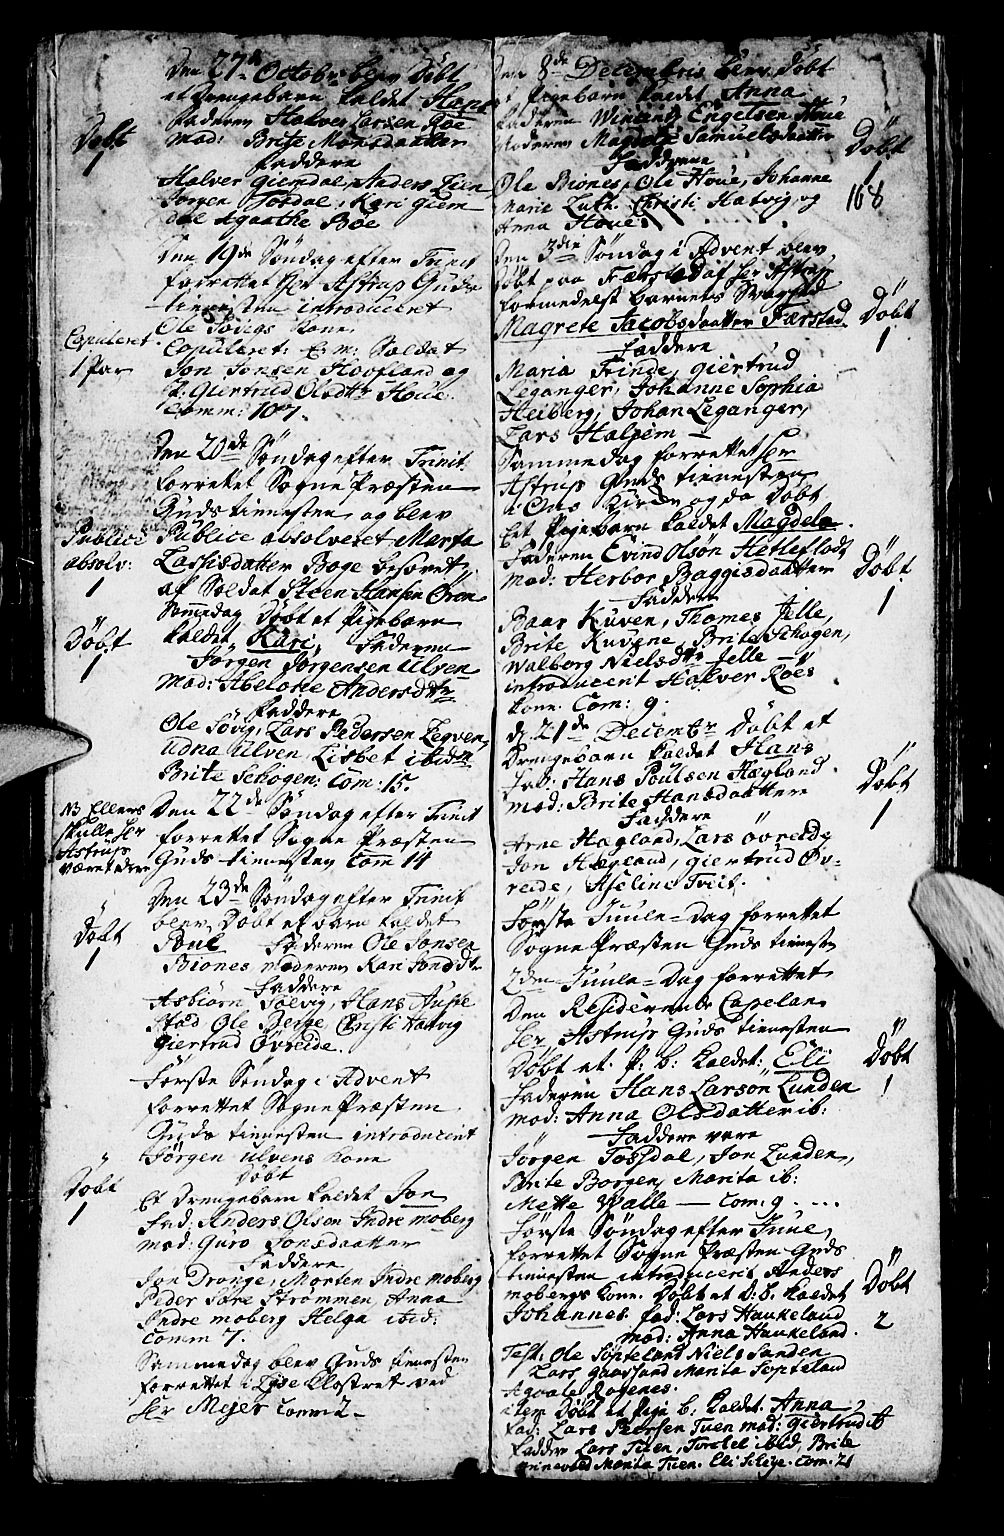 Den 27de Octobr blev Døbt
et Drengebarn kaldet Hans
Faderen Halver Larsen Røe
Mod: Brite Monsdaatter
Døbt
1
Faddere
Halver Giemdal, Anders Lien
Jørgen Tosdal, Kari Giem
dal Agaathe Bøe
Den 19de Søndag efter Trinit
forrettet Her Astrup Guds
tienesten introduceret
Ole Søvigs Kone
Copuleret
1 Par
Copuleret: Em: Soldat
Jon Jonsen Hoofland og
P. Giertrud Olsdtr Houe
Comm: 107.
Den 20de Søndag efter Trinit
forrettet Sogne Præsten
Guds tienesten og blev
Publice
absolv:
1
Publice absolveret Marta
Lassisdatter Boge besovet
af Soldat Steen Hansen Øren
Sammedag Døbt et Pigebarn
Døbt
1
kaldet Kari, Faderen
Jørgen Jørgensen Ulven
Mod: Abelone Andersdtr
Faddere
Ole Søvig, Lars Pedersen Legven,
Udna Ulven Lisbet ibidm
Brite Schogen: Com: 15.
NB Ellers
skulle Her
Astrup
været der
Den 22de Søndag efter Trinit
forrettet Sogne Præsten
Guds tienesten Com 14
Den 23de Søndag efter Trinit
blev Døbt et barn kaldet
Døbt
1
Poul Faderen Ole Jonsen
Biønes moderen Kari Jonsdtr
Faddere
Asbiørn Søevig, Hans Austestad
Ole Berge Christi Hatvig
Giertrud Övreide.
Første Søndag i Advent
forrettet Sogne Præsten
Guds tienesten introduceret
Jørgen Ulvens Kone
Døbt
Døbt
1
Et Drengebarn kaldet Jon
Fad: Anders Olson Indre moberg
mod: Guro Jonsdaatter
Faddere
Jon Drange, Morten Indre moberg
Peder Søre Strømmen, Anna
Indre moberg Helga ibid:
Comm 7.
Sammedag blev Guds tienesten
forrettet i Lyse Closteret ved
Her Mejer Comm 2
Den 8de Decembris blev Døbt
et Pigebarn kaldet Anna
Faderen Wincents Engelsen Houe
Moderen Magdele Samuelsdaatter
Døbt
1
108
Faddere
Ole Biønes, Ole Houe, Johanne
Marie Luth. Christi Hatvig og
Anna Houe.
Den 3die Søndag i Advent blev
Døbt paa Færstad af Her Astrup
formedelst barnets Svaghed
Døbt
1
Magrete Jacobsdaatter Færstad.
Faddere
Maria Frinde, Giertrud
Leganger, Johanne Sophia
Heiberg, Johan Leganger,
Lars Halsem
Sammedag forrettet Her
Astrup Guds tienesten
i Ous Kirke og da Døbt
Et Pigebarn kaldet Magdela.
Døbt
1
Faderen Evind Olsøn Hetleflodt
mod: Herbor Baggisdaatter
Faddere
Baar Kuven, Thomes Jelle,
Brite Kuvene, Brite Schogen,
Walborg Nielsdtr Jelle
introduceret Halver Røes
kone. Com: 9.
d. 21de Decembr Døbt et
Drengebarn kaldet Hans
Døbt
1
Fad: Hans Poulsen Hægland.
mod: Brite Hansdaatter
Faddere
Arne Hagland, Lars övreide
Jon Hægland, Giertrud Øv-
reide, Aseline Tveit.
Første Juule-Dag forrettet
Sogne Præsten Guds tieneste
2den Juule-Dag forrettet
Den Residerende Capelan
Her Astrup Guds tienesten
Døbt
1
Døbt et P: b: kaldet: Eli
Faderen Hans Larsøn Lunden
mod: Anna Olsdatter ib:
Faddere vare
Jørgen Tossdal, Jon Lunden,
Brite Borgen, Marita ib:
Mette Walle — Com: 9
Første Søndag efter Juul
forrettet Sogne Præsten Guds
tienesten introduceris Anders
Døbt
2
mobergs kone. Døbt et D: b: kaldet
Johannes. Fad: Lars Haukeland
mod: Anna Haukeland.
Test: Ole Søpteland Niels Sanden
Lars Marita Søpteland
item Døbt et Pige b. kaldet Anna
Fad: Lars Peersen Tuen mod: Giertrud ib
Faddere Lars Tuen, Torstel ibid, Brite
Marita Tuen. Eli Com. 21